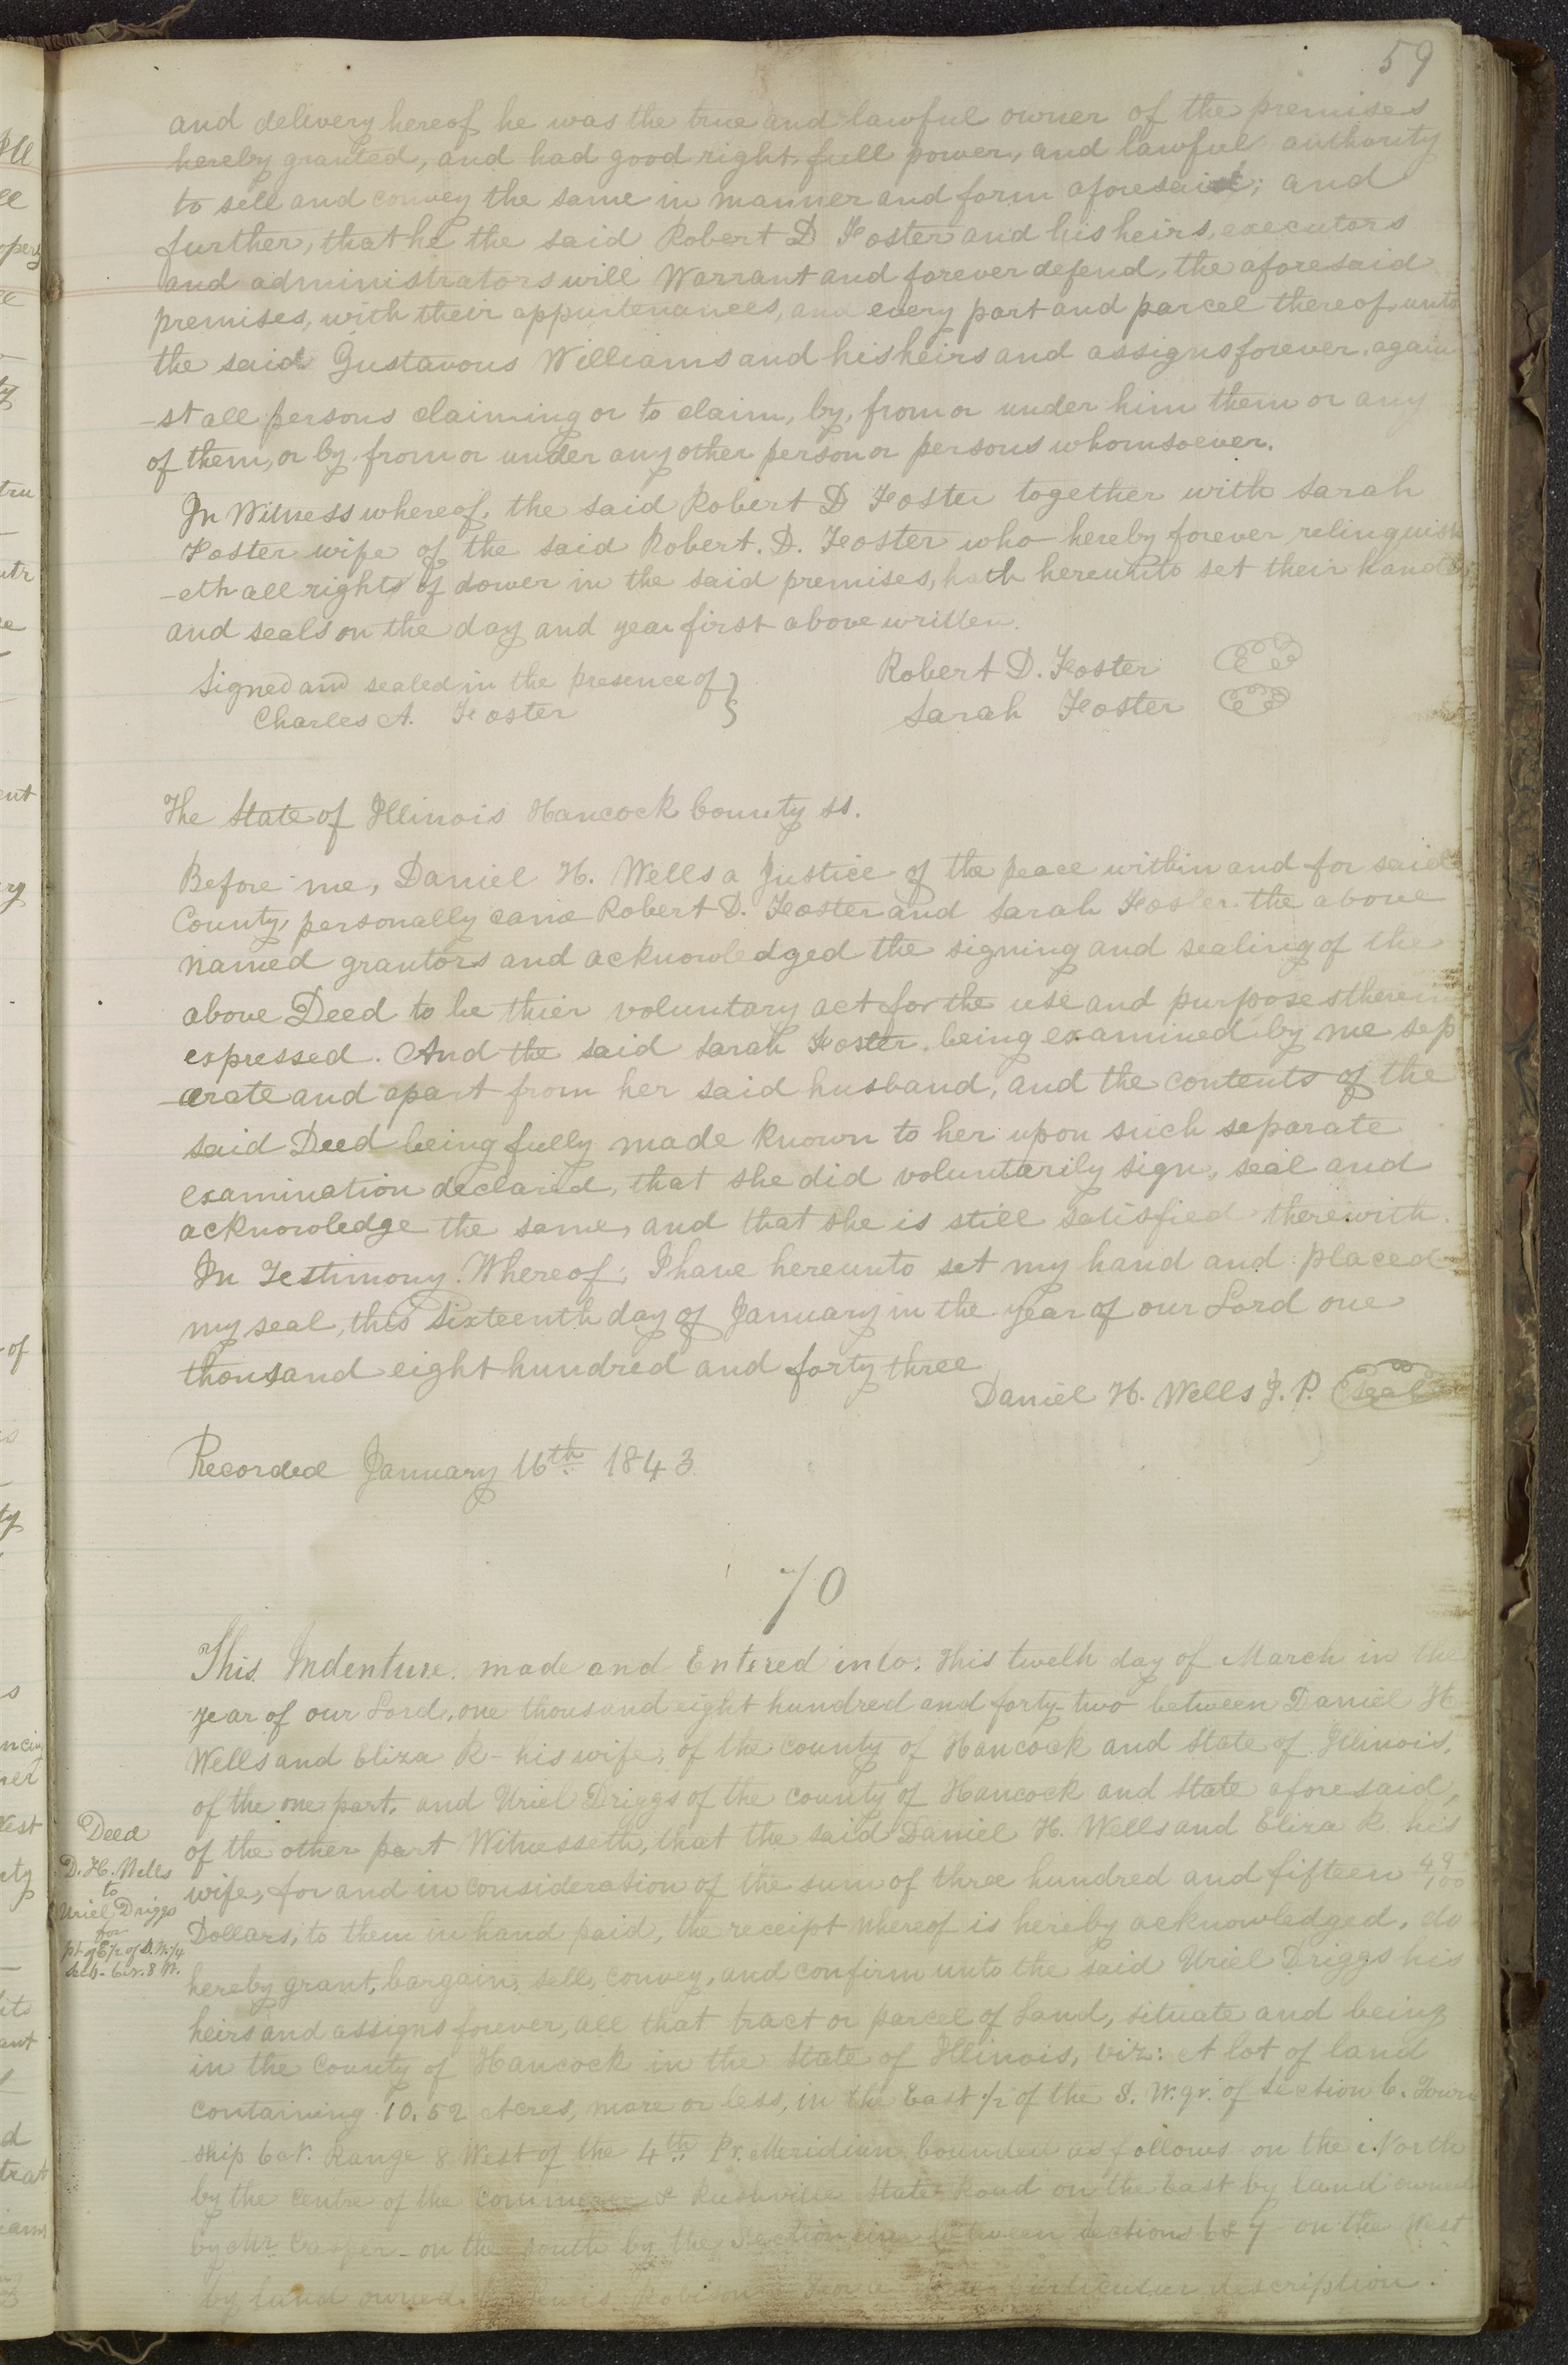 59
and delivery hereof he was the true and lawful owner of the premises
hereby granted, and had good right, full power, and lawful authority
to sell and convey the same in manner and form aforesaid; and
further, that he the said Robert D Foster and his heirs, executors
and administrators will Warrant and forever defend, the aforesaid
premises, with their appurtenances, and every part and parcel thereof, unto
the said Gustavous Williams and his heirs and assigns forever, again
-st all persons claiming or to claim, by, from or under him them or any
of them, or by, from or under any other person or persons whomsoever.
In Witness whereof, the said Robert D Foster together with Sarah
Foster wife of the said Robert. D. Foster who hereby forever relinquish
-eth all rights of dower in the said premises, hath hereunto set their hands
and seals on the day and year first above written.
Signed and sealed in the presence of }
Charles A. Foster
Robert D. Foster
Sarah Foster
The State of Illinois Hancock County ss.
Before me, Daniel H. Wells a Justice of the peace within and for said
County, personally came Robert D. Foster and Sarah Foster the above
named grantors and acknowledged the signing and sealing of the
above Deed to be thier voluntary act for the use and purposes therein
expressed. And the said Sarah Foster, being examined by me sep
-arate and apart from her said husband, and the contents of the
said Deed being fully made known to her upon such separate
examination declared, that she did voluntarily sign, seal and
acknowledge the same, and that she is still satisfied therewith.
In Testimony Whereof, I have hereunto set my hand and placed
my seal, this Sixteenth day of January in the year of our Lord one
thousand eight hundred and forty three
Daniel H. Wells J. P. Seal
Recorded January 16th 1843
70
This Indenture made and Entered into. this twelth day of March in the
year of our Lord, one thousand eight hundred and forty-two between Daniel H
Wells and Eliza R- his wife, of the county of Hancock and State of Illinois,
of the one part, and Uriel Driggs of the county of Hancock and State aforesaid,
of the other part Witnesseth, that the said Daniel H. Wells and Eliza R. his
wife, for and in consideration of the sum of three hundred and fifteen 49/100
Dollars, to them in hand paid, the receipt whereof is hereby acknowledged, do
hereby grant, bargain, sell, convey, and confirm unto the said Uriel Driggs his
heirs and assigns forever, all that tract or parcel of Land, situate and being
in the County of Hancock in the State of Illinois, viz: A lot of land
containing 10.52 Acres, more or less, in the East 1/2 of the S. W. qr. of Section 6. Town
ship 6 N. Range 8 West of the 4th Pr. Meridian bounded as follows on the North
by the centre of the Commerce & Rushville State Road on the East by land owned
by Mr. Casper - on the south by the Section line between Sections 6 & 7 on the West
by land owned by Lewis Robison particular description.
Deed
D. H. Wells
to
Uriel Driggs
for
pt of E 1/2 of S. W. 1/4
Sec 6- 6 N. 8 W.